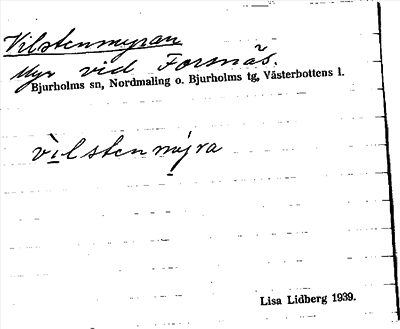 Vilstenmyran
Myr vid Forsnäs.
Bjurholms sn, Nordmaling o. Bjurholms tg, Västerbottens l.
vìlstenmýra
Lisa Lidberg 1939.